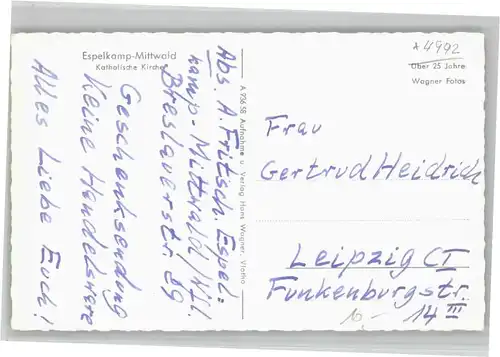 Espelkamp-Mittwald
Katholische Kirche
Abs. A. Fritsch. Espel-
kamp-Mittwald/Wil.
Breslauerstr. 89
Geschenksendung
Keine Handelsware
Alles Liebe Euch!
A 93658 Aufnahme u. Verlag Hans Wagner, Vlotho
A 4992
Über 25 Jahre
Wagner Fotos
Frau
Gertrud Heidrich
Leipzig C I
Funkenburgstr.
14 III
10,-